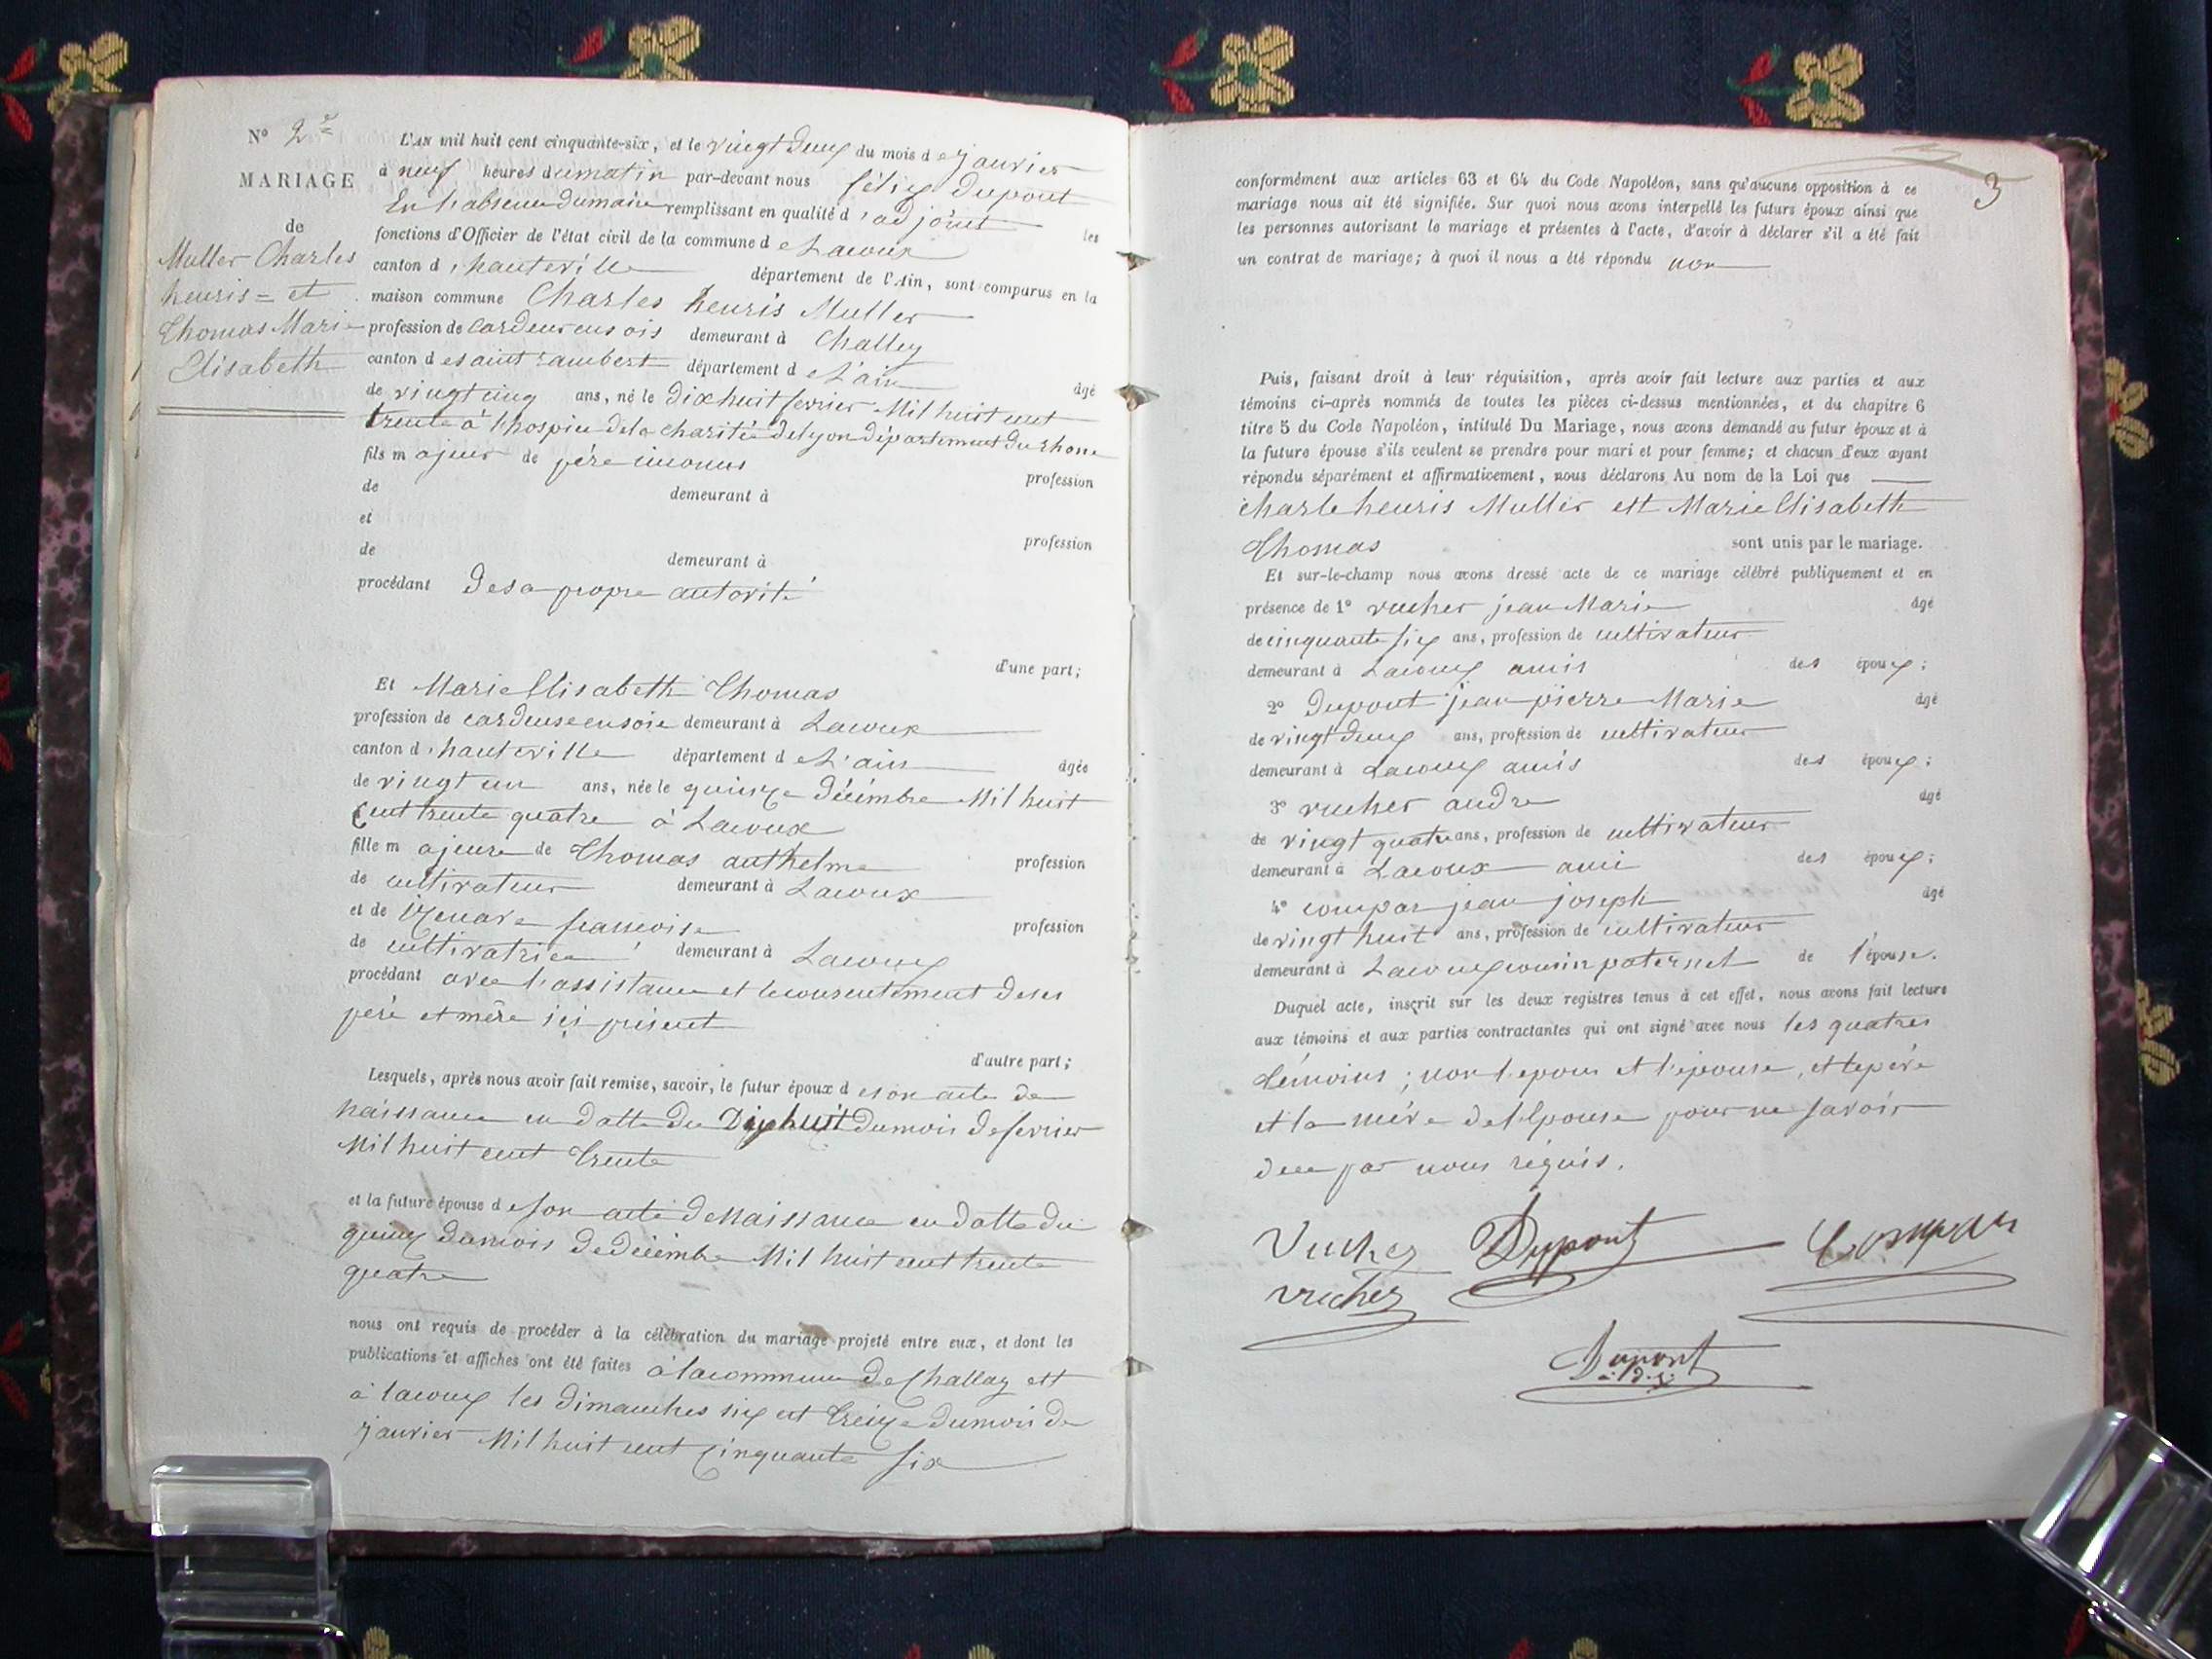 N° 2e
MARIAGE
de
Muller Charles
henris = et
Thomas Marie
Elisabeth
L'AN mil huit cent cinquante-six, et le vingt deux du mois de janvier
à neuf heures du matin par-devant nous félix Dupont
En l'absence du maire remplissant en qualité d'adjoint les
fonctions d'Officier de l'état civil de la commune de Lacoux
canton d'hauteville département de l'Ain, sont comparus en la
maison commune Charles henris Muller
profession de Cardeur en sois demeurant à Challey
canton de saint rambert département de L'ain âgé
de vingt cinq ans, né le Dix huit fevrier Mil huit cent
trente à l'hospice de la charitée de lyon département du rhone
fils majeur de père inconnus profession
de demeurant à
et profession
de demeurant à
procédant de sa propre autorité
d'une part;
Et Marie Elisabeth Thomas
profession de cardeuse en soie demeurant à Lacoux
canton d'hauteville département de L'ain âgée
de vingt un ans, née le quinze décembre Mil huit
Cent trente quatre à Lacoux
fille majeure de Thomas anthelme profession
de cultivateur demeurant à Lacoux
et de françoise profession
de cultivatrice demeurant à Lacoux
procédant avec l'assistance et le consentement de ses
père et mère ici présent
d'autre part;
Lesquels, après nous avoir fait remise, savoir, le futur époux de son acte de
naissance en datte du Dix huit du mois de fevrier
Mil huit cent Trente
et la future épouse de son acte de Naissance en datte du
quinz du mois de décembre Mil huit cent trente
quatre
nous ont requis de procéder à la célébration du mariage projeté entre eux, et dont les
publications et affiches ont été faites à la commune de Challay ett
à lacoux les dimanches six et treize du mois de
janvier Mil huit cent Cinquante six
3
conformément aux articles 63 et 64 du Code Napoléon, sans qu'aucune opposition à ce
mariage nous ait été signifiée. Sur quoi nous avons interpellé les futurs époux ainsi que
les personnes autorisant le mariage et présentes à l'acte, d'avoir à déclarer s'il a été fait
un contrat de mariage; à quoi il nous a été répondu non
Puis, faisant droit à leur réquisition, après avoir fait lecture aux parties et aux
témoins ci-après nommés de toutes les pièces ci-dessus mentionnées, et du chapitre 6
titre 5 du Code Napoléon, intitulé Du Mariage, nous avons demandé au futur époux et à
la future épouse s'ils veulent se prendre pour mari et pour femme; et chacun d'eux ayant
répondu séparément et affirmativement, nous déclarons Au nom de la Loi que
charle henris Muller ett Marie Elisabeth
Thomas sont unis par le mariage.
Et sur-le-champ nous avons dressé acte de ce mariage célébré publiquement et en
présence de 1° vucher jean Marie âgé
de cinquante six ans, profession de cultivateur
demeurant à Lacoux amis des époux;
2° Dupont jean pierre Marie âgé
de vingt deux ans, profession de cultivateur
demeurant à Lacoux amis des époux;
3° vucher andre âgé
de vingt quatre ans, profession de cultivateur
demeurant à Lacoux ami des époux;
4° compar jean joseph âgé
de vingt huit ans, profession de cultivateur
demeurant à Lacoux cousin paternel de l'épouse.
Duquel acte, inscrit sur les deux registres tenus à cet effet, nous avons fait lecture
aux témoins et aux parties contractantes qui ont signé avec nous les quatres
témoins; non l'epoux et l'épouse, et le père
et la mère de l'Epouse pour ne savoir
de ce par nous réquis.
Vucher Dupont Compar
vucher
Dupont